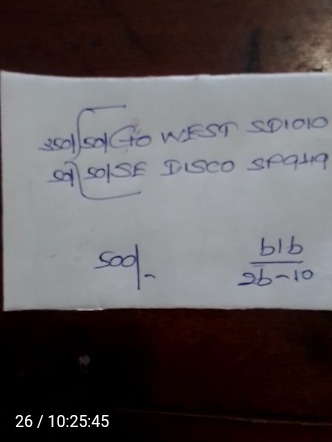 350/ 50/ GO WEST SD1010
50/ 50/ SE DISCO SP949
500/-
b1b
26-10
26 / 10:25:45